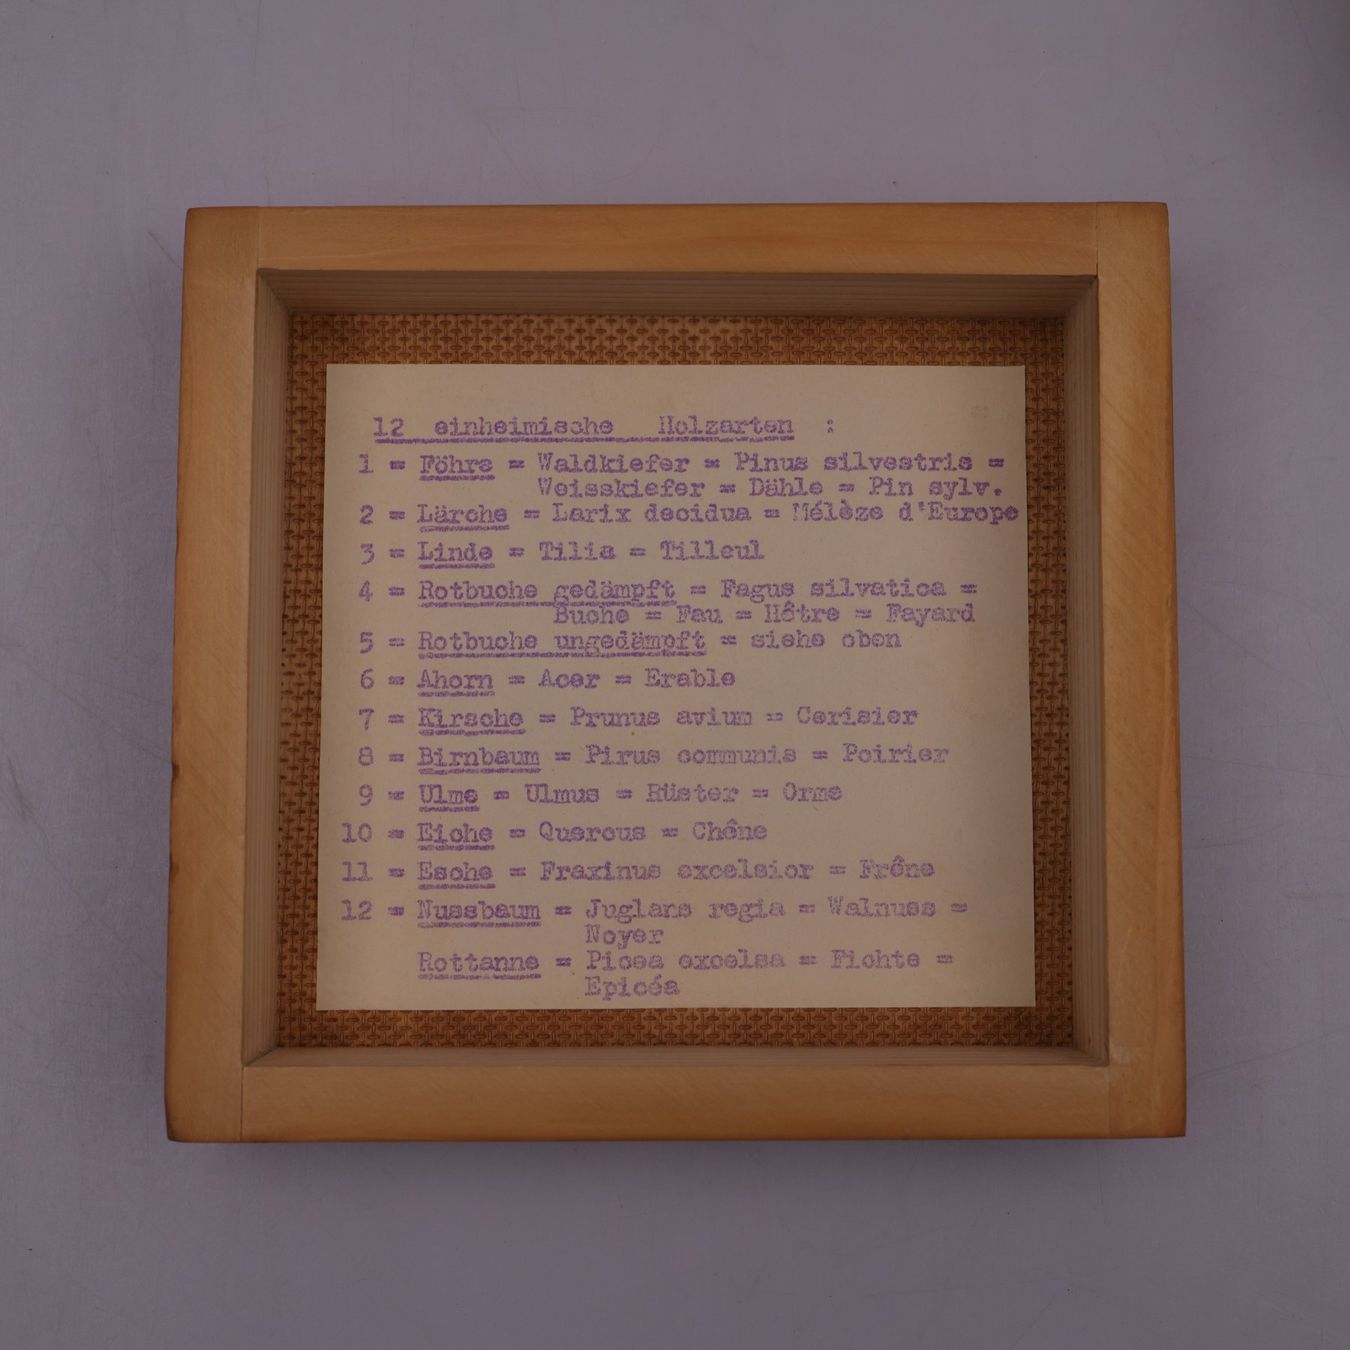 12 einheimische Holzarten :
1 = Föhre = Waldkiefer = Pinus silvestris =
Weisskiefer = Dähle = Pin sylv.
2 = Lärche = Larix decidua = Mélèze d'Europe
3 = Linde = Tilia = Tilleul
4 = Rotbuche gedämpft = Fagus silvatica =
Buche = Fau = Hêtre = Fayard
5 = Rotbuche ungedämpft = siehe oben
6 = Ahorn = Acer = Erable
7 = Kirsche = Prunus avium = Cerisier
8 = Birnbaum = Pirus communis = Poirier
9 = Ulme = Ulmus = Rüster = Orme
10 = Eiche = Quercus = Chêne
11 = Esche = Fraxinus excelsior = Frêne
12 = Nussbaum = Juglans regia = Walnuss =
Noyer
Rottanne = Picea excelsa = Fichte =
Epicéa